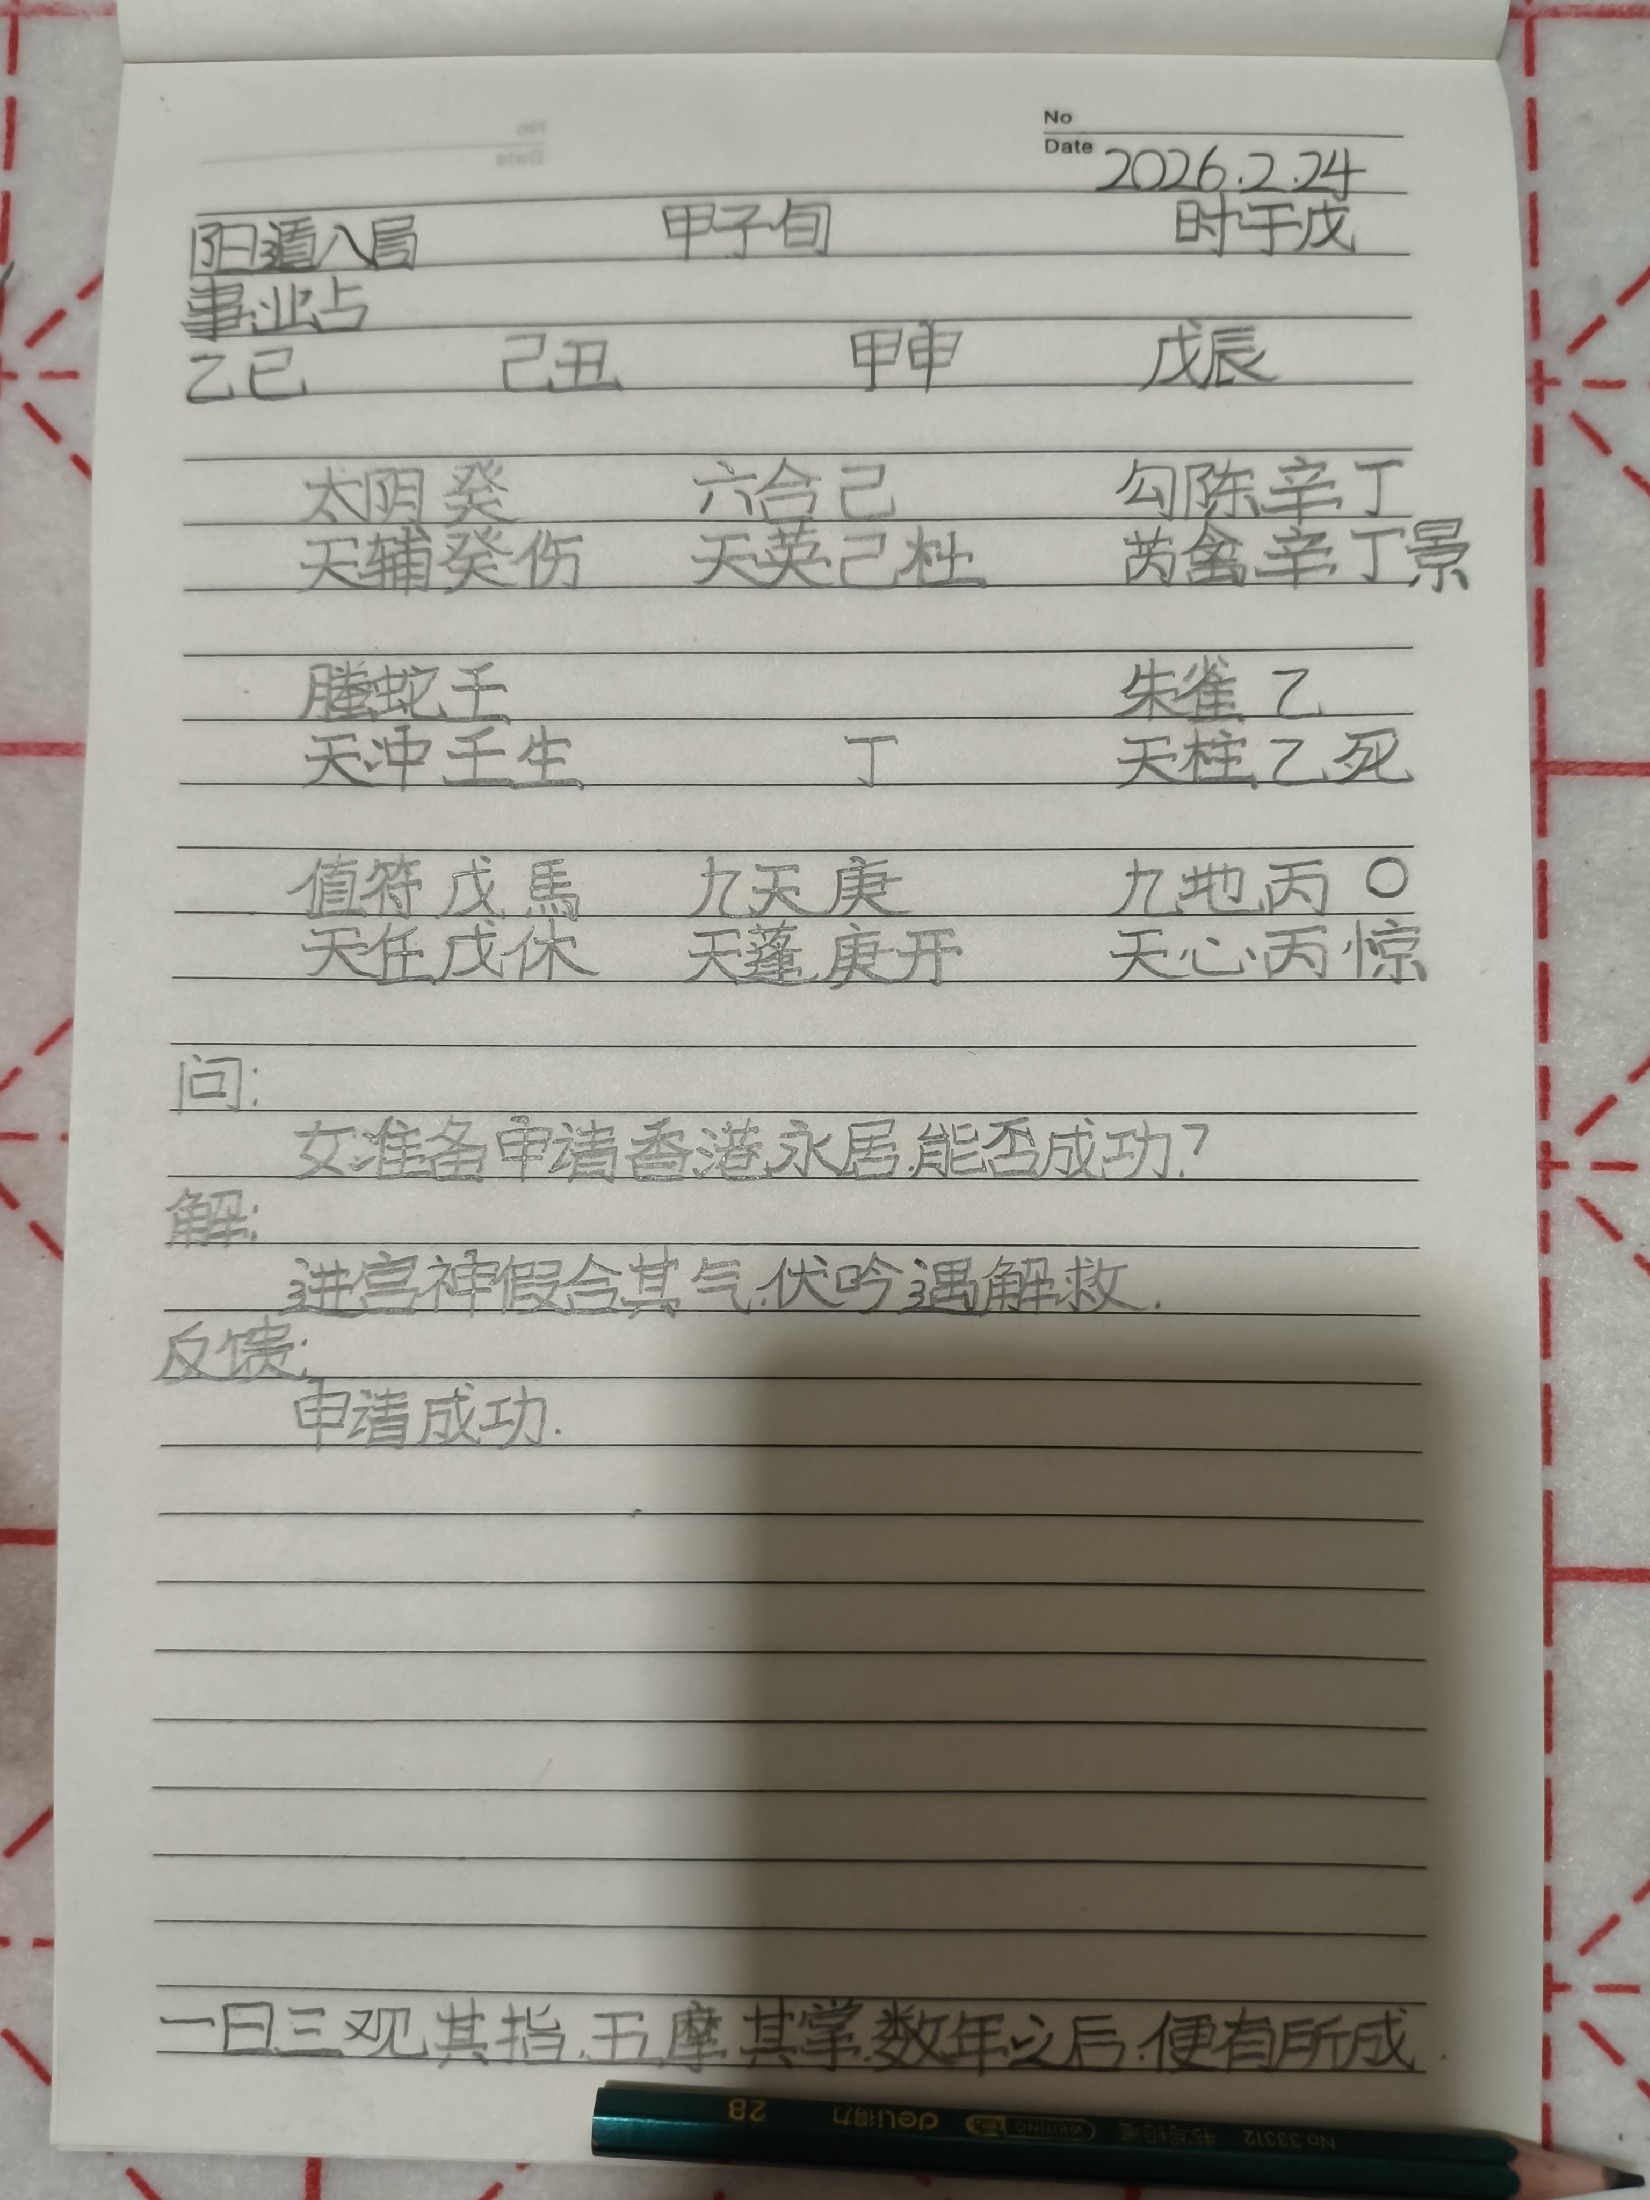 No
Date 2026.2.24
阳遁八局 甲子旬 时干戊
事业占
乙巳 己丑 甲申 戊辰
太阴癸 六合己 勾陈辛丁
天辅癸伤 天英己杜 芮禽辛丁景
螣蛇壬 朱雀乙
天冲壬生 丁 天柱乙死
值符戊馬 九天庚 九地丙〇
天任戊休 天蓬庚开 天心丙惊
问:
女准备申请香港永居,能否成功?
解:
进宫神假合其气,伏吟遇解救.
反馈:
申请成功.
一日三观其指,五摩其掌,数年之后,便有所成.
No.33312 书写铅笔 WRITING deli得力 2B